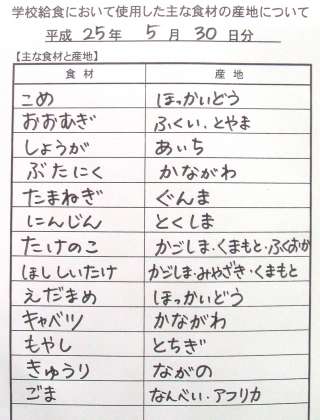 学校給食において使用した主な食材の産地について
平成 25年 5月 30日分
【主な食材と産地】
食材 産地
こめ ほっかいどう
おおむぎ ふくい・とやま
しょうが あいち
ぶたにく かながわ
たまねぎ ぐんま
にんじん とくしま
たけのこ かごしま・くまもと・ふくおか
ほししいたけ かごしま・みやざき・くまもと
えだまめ ほっかいどう
キャベツ かながわ
もやし とちぎ
きゅうり ながの
ごま なんべい・アフリカ